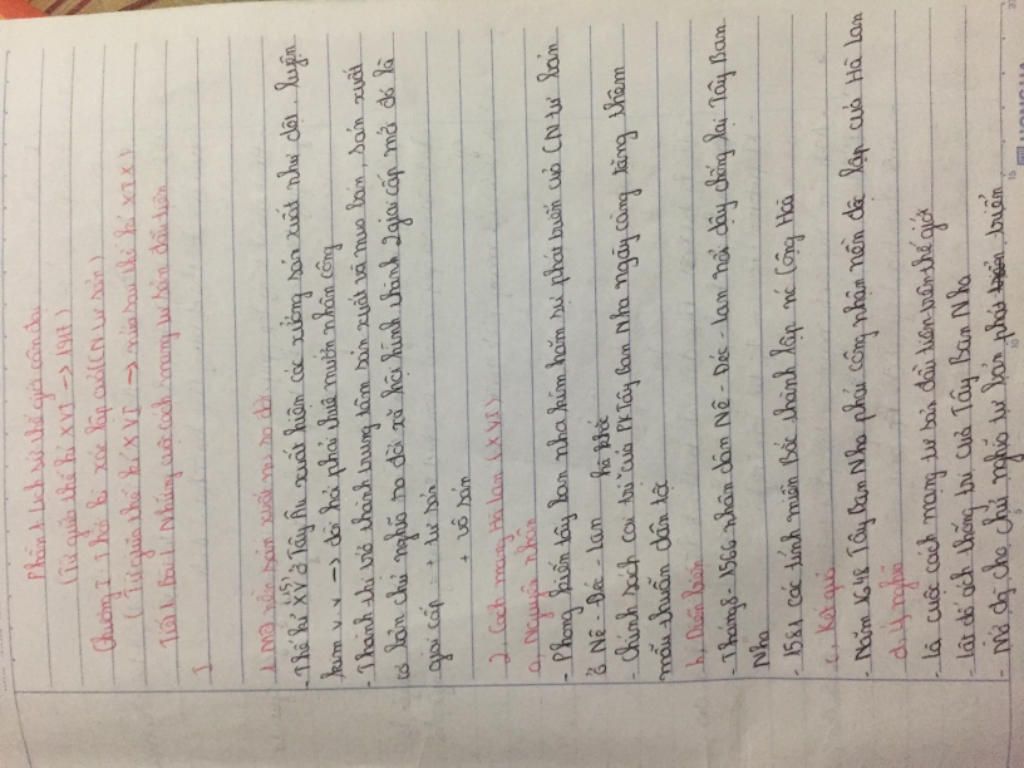 Phần 1. Lịch sử thế giới cận đại
(Từ giữa thế kỉ XVI -> 1917)
Chương I Thời kì xác lập của (CN tư bản)
(Từ giữa thế kỉ XVI -> nửa sau thế kỉ XIX)
Tiết 1. Bài 1: Những cuộc cách mạng tư sản đầu tiên
I
1, Một nền sản xuất mới ra đời
- Thế kỉ XV (15) ở Tây Âu xuất hiện các xưởng sản xuất như dệt, luyện
kim v.v -> đòi hỏi phải thuê mướn nhân công
- Thành thị trở thành trung tâm sản xuất và mua bán, sản xuất
tư bản chủ nghĩa ra đời xã hội hình thành 2 giai cấp mới đó là
giai cấp: + tư sản
+ vô sản
2, Cách mạng Hà Lan (XVI)
a, Nguyên nhân
- Phong kiến tây ban nha kìm hãm sự phát triển của CN tư bản
ở Nê-đéc-lan
- Chính sách cai trị của PK Tây Ban Nha ngày càng tăng thêm
mâu thuẫn dân tộc
b, Diễn biến
- Tháng 8-1566 nhân dân Nê-Đéc-lan nổi dậy chống lại Tây Ban
Nha
- 1581 các tỉnh miền Bắc thành lập nc Cộng Hoà
c, Kết quả
- Năm 1648 Tây Ban Nha phải công nhận nền độc lập của Hà Lan
d, Ý nghĩa
- là cuộc cách mạng tư bản đầu tiên trên thế giới
- lật đổ ách thống trị của Tây Ban Nha
- Mở đg cho chủ nghĩa tư bản phát triển